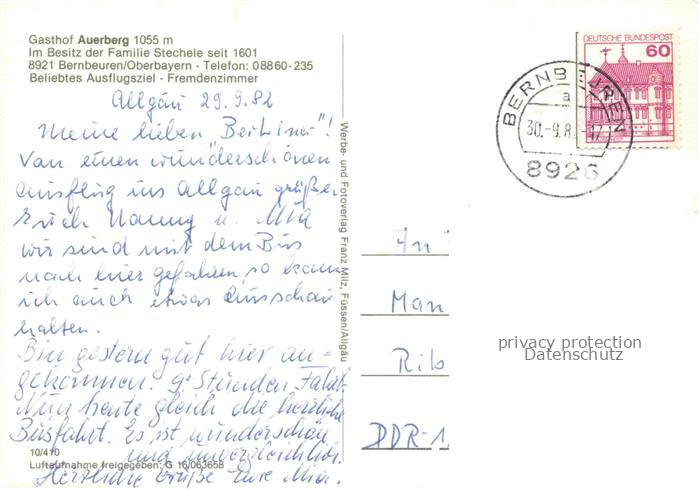 Gasthof Auerberg 1055 m
Im Besitz der Familie Stechele seit 1601
8921 Bernbeuren/Oberbayern - Telefon: 08860-235
Beliebtes Ausflugsziel - Fremdenzimmer
Allgäu 29.9.82
Meine lieben "Berliner"!
Von einen wunderschönen
Ausflug ins Allgäu grüßen
Euch Nanny u. Mia
wir sind mit dem Bus
nach hier gefahren, so kann
ich auch etwas Ausschau
halten.
Bin gestern gut hier an=
gekommen. 9 Stunden Fahrt.
Nun heute gleich die herrliche
Busfahrt. Es ist wunderschön
und unvergleichlich.
Herzliche Grüße Eure Mia.
10/410
Luftaufnahme freigegeben: G 16/063658
Werbe- und Fotoverlag Franz Milz, Füssen/Allgäu
DEUTSCHE BUNDESPOST
60
BERNBEUREN
a
30.-9.8
8926
An
Man
Rib
DDR-1
privacy protection
Datenschutz